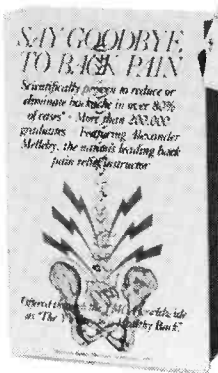 SAY GOODBYE
TO BACK PAIN
Scientifically proven to reduce or
eliminate backache in over 80%
of cases* - More than 200,000
graduates - Featuring Alexander
Melleby, the nation's leading back
pain relief instructor
Offered through the YMCA
as "The Y Healthy Back"